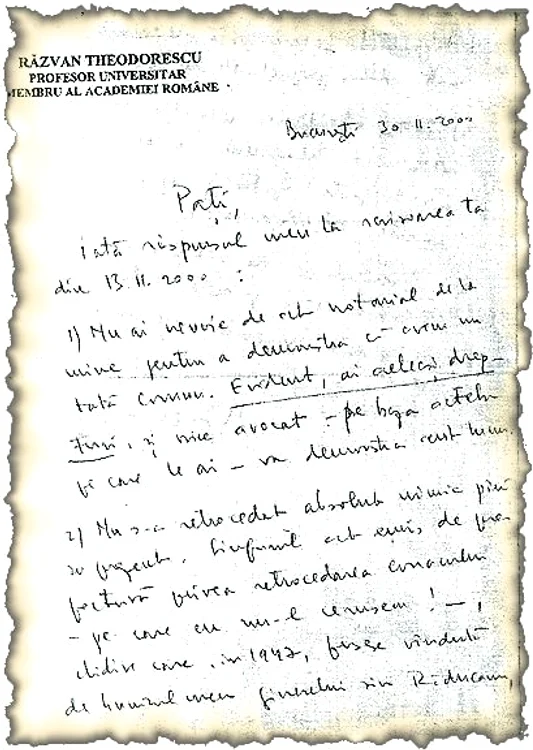 RĂZVAN THEODORESCU
PROFESOR UNIVERSITAR
MEMBRU AL ACADEMIEI ROMÂNE
București 30.11.2000
Pați,
iată răspunsul meu la scrisoarea ta
din 13.11.2000 :
1) Nu ai nevoie de act notarial de la
mine pentru a demonstra că avem un
tată comun. Evident, ai aceleași drep-
turi, și orice avocat - pe baza actelor
pe care le ai - va demonstra acest lucru.
2) Nu s-a retrocedat absolut nimic până
în prezent. Singurul act emis de pre-
fectură privea retrocedarea conacului
- pe care eu nu-l cerusem ! - ,
clădire care, în 1947, fusese vândută
de bunicul meu ginerelui din Răducani,